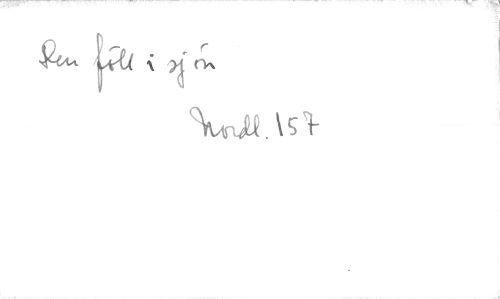 Den föll i sjón
Nordl. 157